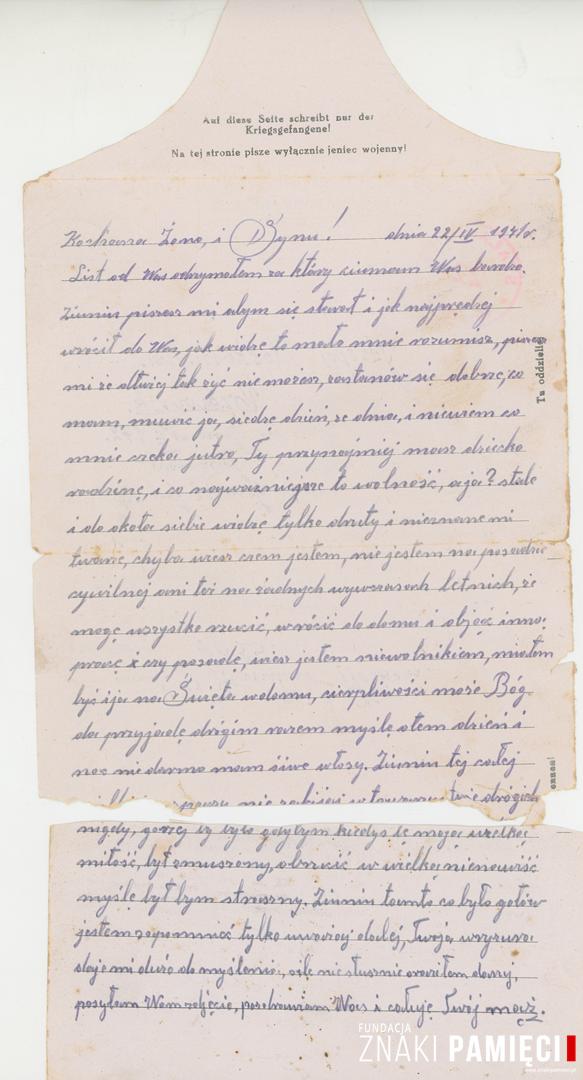 Auf diese Seite schreibt nur der
Kriegsgefangene!
Na tej stronie pisze wyłącznie jeniec wojenny!
Kochana Żono, i Synu! dnia 22/IV 1941r.
List od Was otrzymałem za który ciumam Was bardzo.
Ziunin piszesz mi abym się starał i jak najprędzej
wrócił do Was, jak widzę to mało mnie rozumisz, piszesz
mi że dłużej tak żyć nie możesz, zastanów się dobrze, co
mam, muwić ja, siedzę dzień, ze dnia, i niewiem co
mnie czeka jutro, Ty przynajmiej masz dziecko
rodzinę, i co najważniejsze to wolność, a ja? stale
i do okoła siebie widzę tylko druty i nieznane mi
twarze, chyba wiesz czem jestem, nie jestem na posadzie
cywilnej ani też na żadnych wywczasach letnich, że
mogę wszystko rzucić, wrócić do domu i objąć inną
pracę i czy posadę, wiesz jestem niewolnikiem, miałem
być i ja na Święta w domu, cierpliwości może Bóg
da przyjadę drógim razem myślę otem dzień i
noc nie darmo mam siwe włosy. Ziunin tej całej
nie twoich drógich
nigdy, gorzej by było gdybym kiedyś tę moją wielką
miłość, był zmuszony, obrucić w wielką nienawiść
myślę był bym straszny. Ziunin tamto co było gotów
jestem zapomnieć tylko uważaj dalej, Twoja
daje mi dużo do myślenia, nie słusznie
posyłam Wam zdjęcie, pozdrawiam Was i całuję Twój mąż.
Tu oddzielić
FUNDACJA
ZNAKI PAMIĘCI
www.znakipamieci.pl